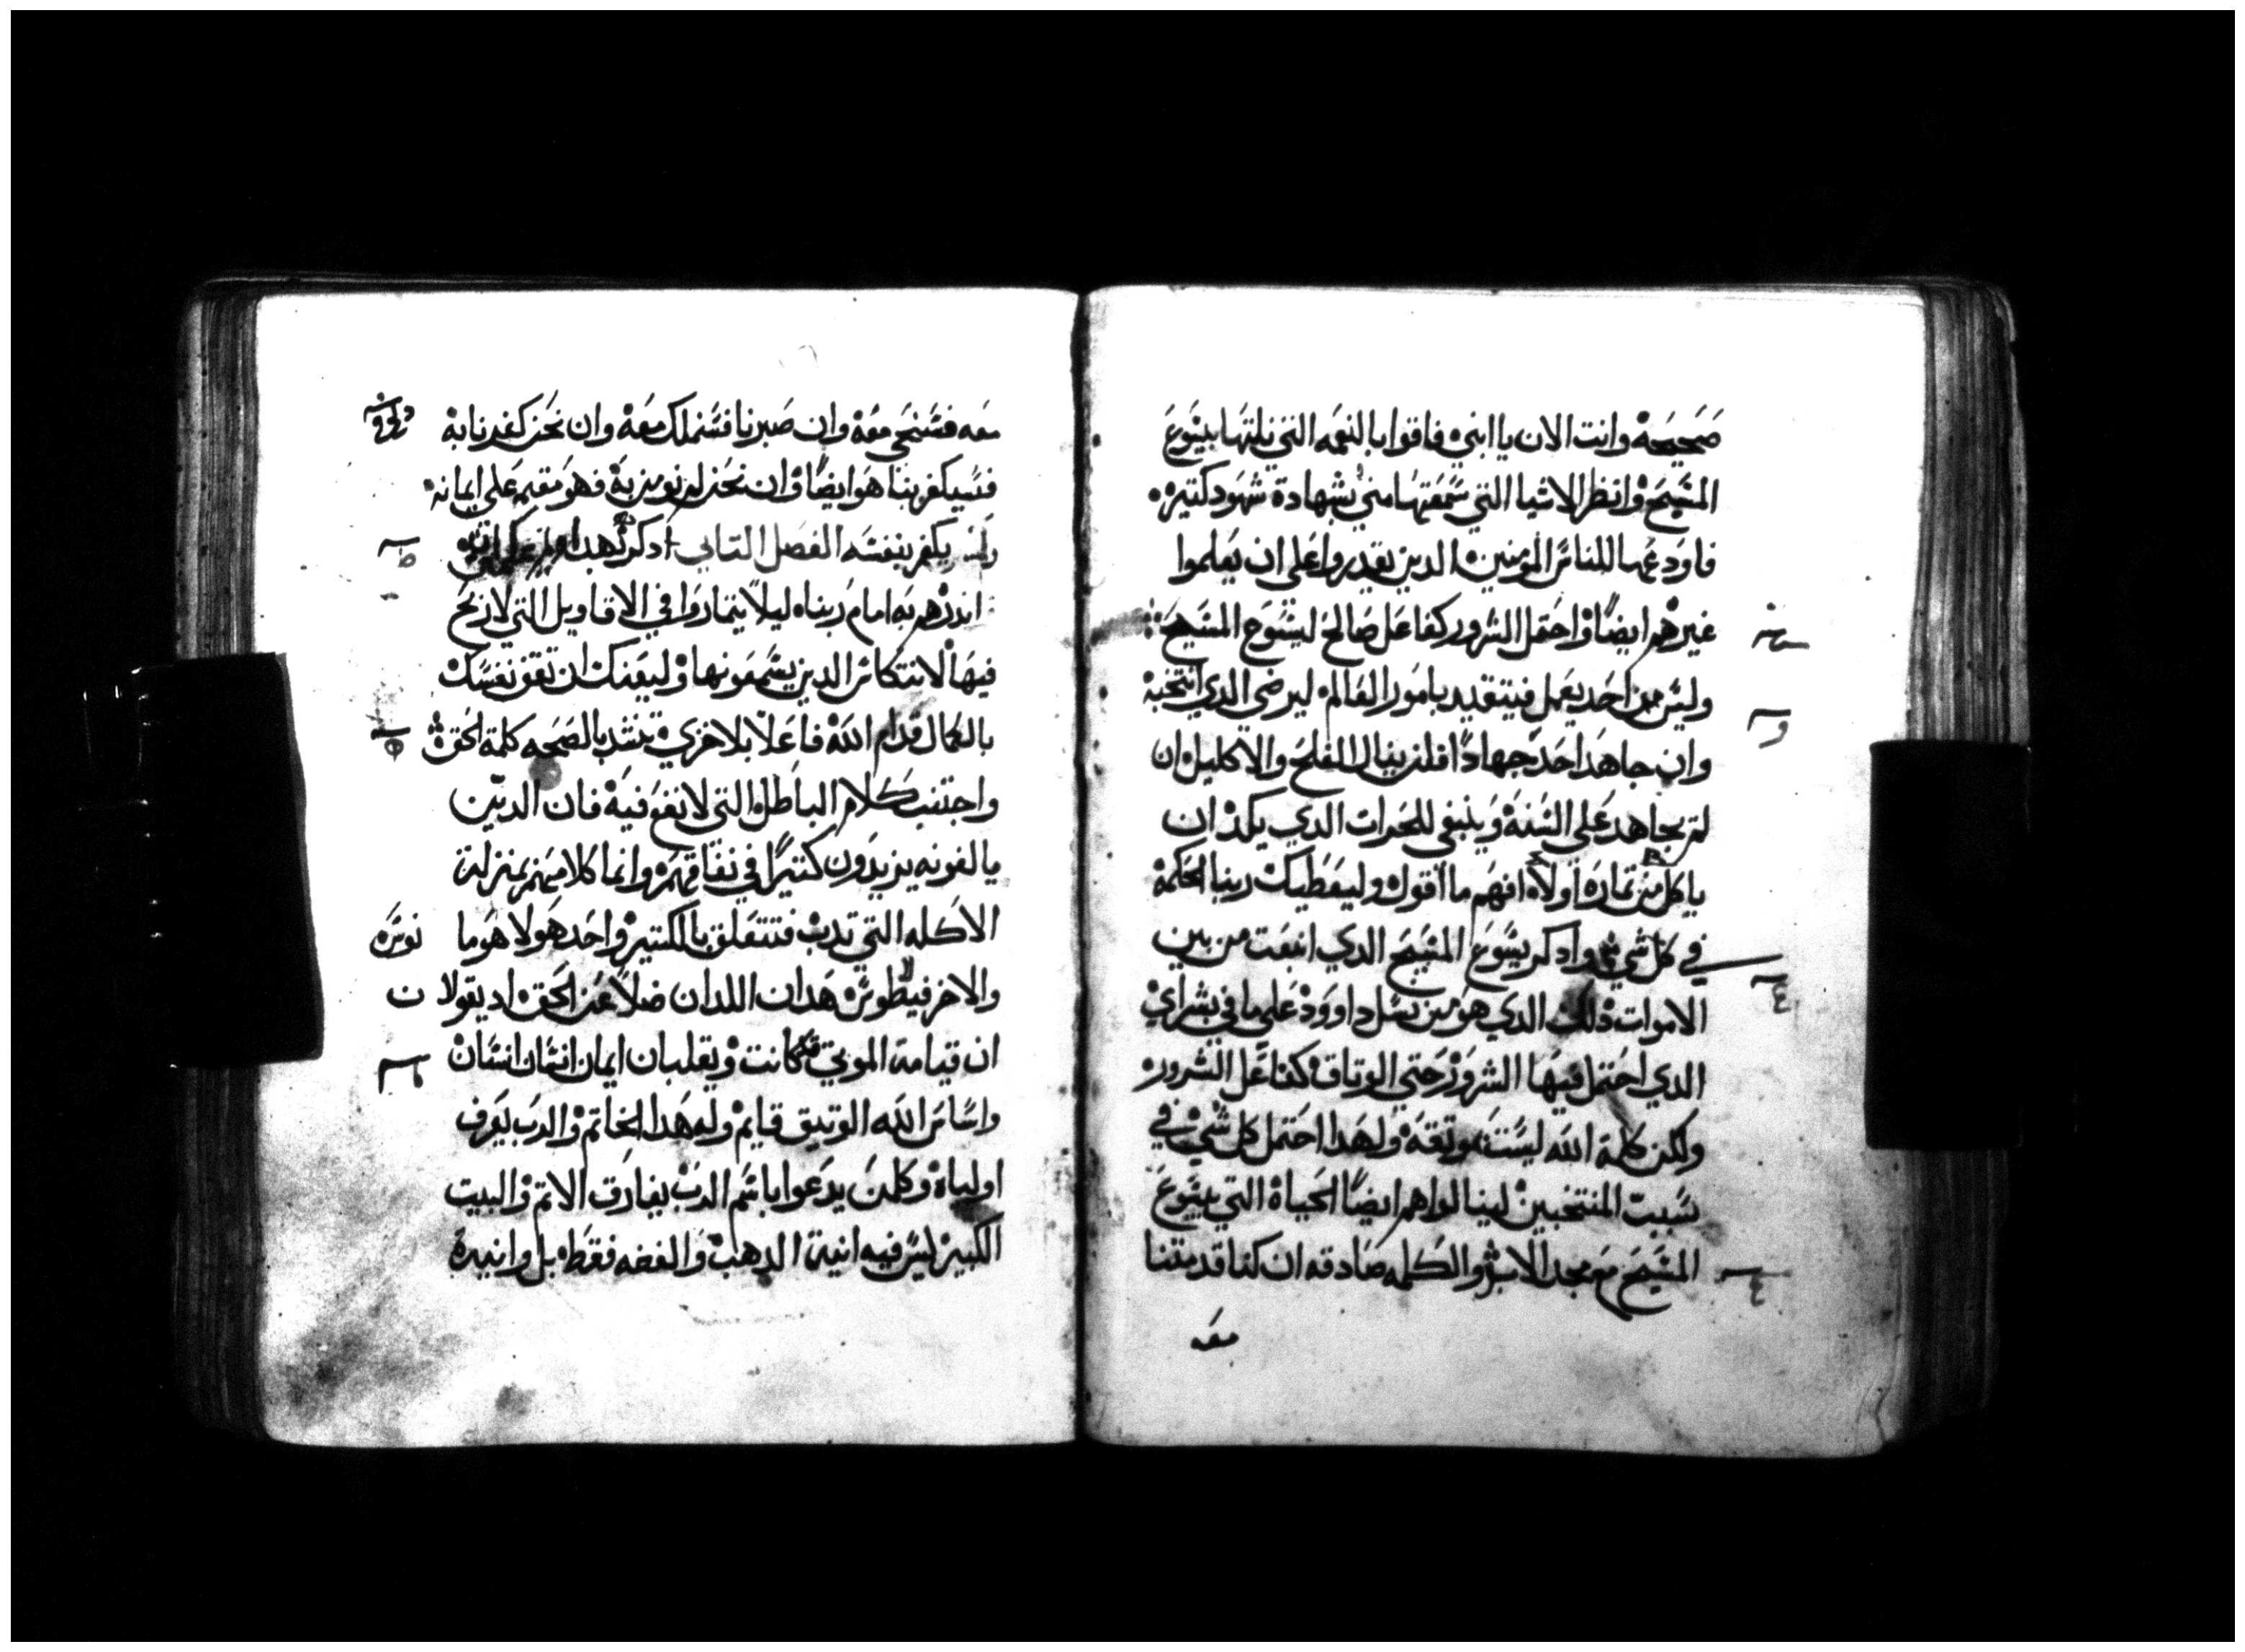 صحيحة وانت الان يا ابني فاقوا بالنعمه التي نلتها بيسوع
المسيح وانظر الاشيا التي سمعتها مني بشهادة شهود كتيره
فاودعها للناس المومنين الدين يقدروا على ان يعلموا
غيرهم ايضًا واحتمل الشرور كفاعل صالح ليسوع المسيح
وليس من احد يعمل فيتقيد بامور العالم ليرضي الدي انتخبه
وان جاهد احد جهادًا فلن ينال الفلح والاكليل ان
لم يجاهد على السنة وينبغي للحرات الدي يكد ان
ياكل من تماره اولاه افهم ما اقول وليعطيك ربنا الحكمة
في كل شي واذكر يسوع المسيح الدي انبعت من بين
الاموات ذلك الدي هو من نسل داوود على ما في بشراي
الدي احتمل فيها الشرور حتى الوتاق كفاعل الشرور
ولكن كلمة الله ليست موتقة ولهدا احتمل كل شي في
سبب المنتخبين لينالوا هم ايضًا الحياة التي بيسوع
المسيح مع مجد الابد والكلمه صادقه ان كنا قد متنا
معه
معه فسنحي معه وان صبرنا فسنملك معه وان نحن كفرنا به
فسيكفر بنا هو ايضًا وان نحن لم نومن به فهو مقيم على ايمانه
ولن يكفر بنفسه الفصل التاني ادكرهم بهدا
اندرهم به امام ربناه ليلا يتماروا في الاقاويل التي لا ربح
فيها لانتكاس الدين يسمعونها وليعنك ان تقف نفسك
بالكمال قدام الله فاعلًا بلا خزي تبتد بالصحه كلمة الحق
واجتنب كلام الباطل التي لا نفع فيه فان الدين
يالفونه يزيدون كتيرًا في نفاقهم وانما كلامهم بمنزلة
الاكله التي تدب فتتعلق بالكتير واحد هولا هوما
والاخر فيلطوس هدان اللدان ضلا عن الحق اد يقولا ن
ان قيامة الموتي قد كانت ويقلبان ايمان انسان انسان
واساس الله الوتيق قايم وله هدا الخاتم والرب يعرف
اولياه وكل من يدعوا باسم الرب يفارق الاتم والبيت
الكبير ليس فيه انية الدهب والفضه فقط بل وانية